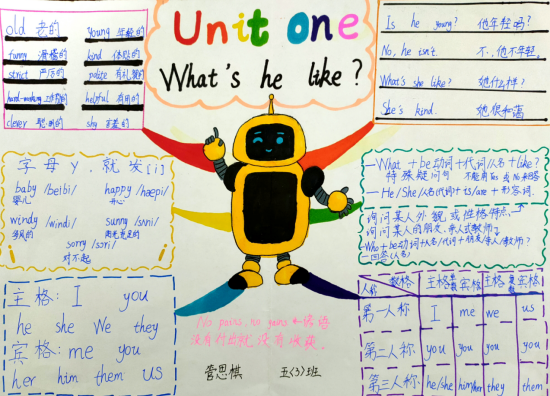 Unit One
What's he like?
old 老的 young 年轻的
funny 滑稽的 kind 体贴的
strict 严厉的 polite 有礼貌的
hard-working helpful 有用的
clever 聪明的 shy 害羞的
Is he young? 他年轻吗?
No, he isn't. 不,他不年轻。
What's she like? 她什么样?
She's kind 她很和蔼
字母Y,就发[i]
baby /beibi/ happy /hæpi/
婴儿 开心
windy /windi/ sunny /sʌni/
有风的
sorry /sɒri/
对不起
一What+be动词+代词/人名+like?
特殊疑问句 不能用Yes或No来回答
一He/She/人名/代词+is/are+形容词.
询问某人外貌或性格特点
询问某人的朋友,亲人或教师。
一Who+be动词+人名/代词+朋友/亲人/教师?
一回答(人名)
主格:I you
he she We they
宾格:me you
her him them us
No pains, no gains
没有付出就没有收获
管思棋 五(3)班
人称 数格 主格 宾格 主格 宾格
第一人称 I me we us
第二人称 you you you you
第三人称 he/she him/her they them